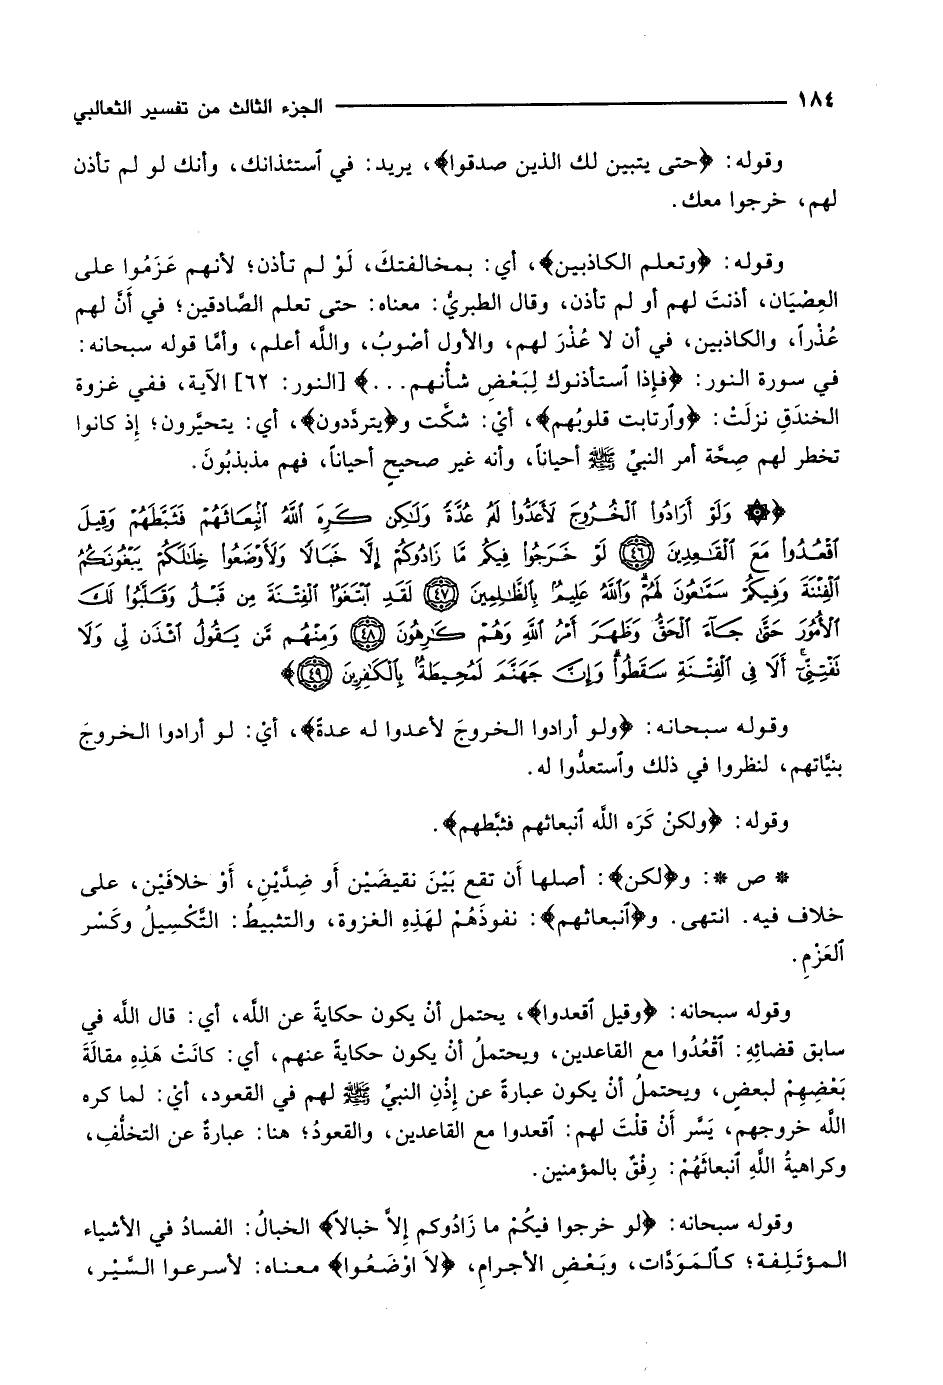 ١٨٤ ــــــــــــــــــــ الجزء الثالث من تفسير الثعالبي
وقوله: ﴿حتى يتبين لك الذين صدقوا﴾، يريد: في ٱستئذانك، وأنك لو لم تأذن
لهم، خرجوا معك.
وقوله: ﴿وتعلم الكاذبين﴾، أي: بمخالفتكَ، لَوْ لم تأذن؛ لأنهم عَزَمُوا على
العِصْيَان، أذنتَ لهم أو لم تأذن، وقال الطبريُّ: معناه: حتى تعلم الصَّادقين؛ في أَنَّ لهم
عُذْراً، والكاذبين، في أن لا عُذْرَ لهم، والأول أصْوبُ، واللَّه أعلم، وأمَّا قوله سبحانه:
في سورة النور: ﴿فإِذا ٱستأذنوك لِبَعْضِ شأْنهم...﴾ [النور: ٦٢] الآية، ففي غزوة
الخندَقِ نزلَتْ: ﴿وٱرتابت قلوبُهم﴾، أيْ: شكَّت و﴿يتردَّدون﴾، أي: يتحيَّرون؛ إِذ كانوا
تخطر لهم صِحَّة أمر النبيِّ ﷺ أحياناً، وأنه غير صحيحٍ أحياناً، فهم مذبذبُونَ.
﴿۞ وَلَوْ أَرَادُوا۟ ٱلْخُرُوجَ لَأَعَدُّوا۟ لَهُۥ عُدَّةً وَلَـٰكِن كَرِهَ ٱللَّهُ ٱنۢبِعَاثَهُمْ فَثَبَّطَهُمْ وَقِيلَ
ٱقْعُدُوا۟ مَعَ ٱلْقَـٰعِدِينَ ﴿٤٦﴾ لَوْ خَرَجُوا۟ فِيكُم مَّا زَادُوكُمْ إِلَّا خَبَالًا وَلَأَوْضَعُوا۟ خِلَـٰلَكُمْ يَبْغُونَكُمُ
ٱلْفِتْنَةَ وَفِيكُمْ سَمَّـٰعُونَ لَهُمْ وَٱللَّهُ عَلِيمٌۢ بِٱلظَّـٰلِمِينَ ﴿٤٧﴾ لَقَدِ ٱبْتَغَوُا۟ ٱلْفِتْنَةَ مِن قَبْلُ وَقَلَّبُوا۟ لَكَ
ٱلْأُمُورَ حَتَّىٰ جَآءَ ٱلْحَقُّ وَظَهَرَ أَمْرُ ٱللَّهِ وَهُمْ كَـٰرِهُونَ ﴿٤٨﴾ وَمِنْهُم مَّن يَقُولُ ٱئْذَن لِّى وَلَا
تَفْتِنِّىٓ أَلَا فِى ٱلْفِتْنَةِ سَقَطُوا۟ وَإِنَّ جَهَنَّمَ لَمُحِيطَةٌۢ بِٱلْكَـٰفِرِينَ ﴿٤٩﴾﴾
وقوله سبحانه: ﴿ولو أرادوا الخروجَ لأعدوا له عدةً﴾، أيْ: لو أرادوا الخروجَ
بنيَّاتهم، لنظروا في ذلك وٱستعدُّوا له.
وقوله: ﴿ولكنْ كَرَه اللَّه ٱنبعاثهم فثبَّطهم﴾.
* ص *: و﴿لكن﴾: أصلها أَن تقع بَيْنَ نقيضَيْن أَو ضِدَّيْنِ، أَوْ خلافَيْن، على
خلاف فيه. انتهى. و﴿ٱنبعاثهم﴾: نفوذَهُمْ لهَذِهِ الغزوة، والتثبيطُ: التَّكْسِيلُ وكَسْر
العَزْمِ.
وقوله سبحانه: ﴿وقيل ٱقعدوا﴾، يحتمل أنْ يكون حكايةً عن اللَّه، أي: قال الله في
سابق قضائِهِ: ٱقْعُدُوا مع القاعدين، ويحتملُ أنْ يكون حكايةً عنهم، أي: كانَتْ هَذِهِ مقالَةَ
بَعْضِهِمْ لبعضٍ، ويحتملُ أنْ يكون عبارةً عن إِذْنِ النبيِّ ﷺ لهم في القعود، أيْ: لما كره
اللَّه خروجهم، يَسَّر أَنْ قلْتَ لهم: ٱقعدوا مع القاعدين، والقعودُ؛ هنا: عبارةٌ عن التخلُّفِ،
وكراهيةُ اللَّهِ ٱنبعاثَهُمْ: رِفْقٌ بالمؤمنين.
وقوله سبحانه: ﴿لو خرجوا فيكُمْ ما زَادُوكم إِلاَّ خبالاً﴾ الخبالُ: الفسادُ في الأشياء
المؤتَلِفة؛ كٱلمَوَدَّات، وبَعْضِ الأجرامِ، ﴿لاَ اوْضَعُوا﴾ معناه: لأسرعوا السَّيْر،